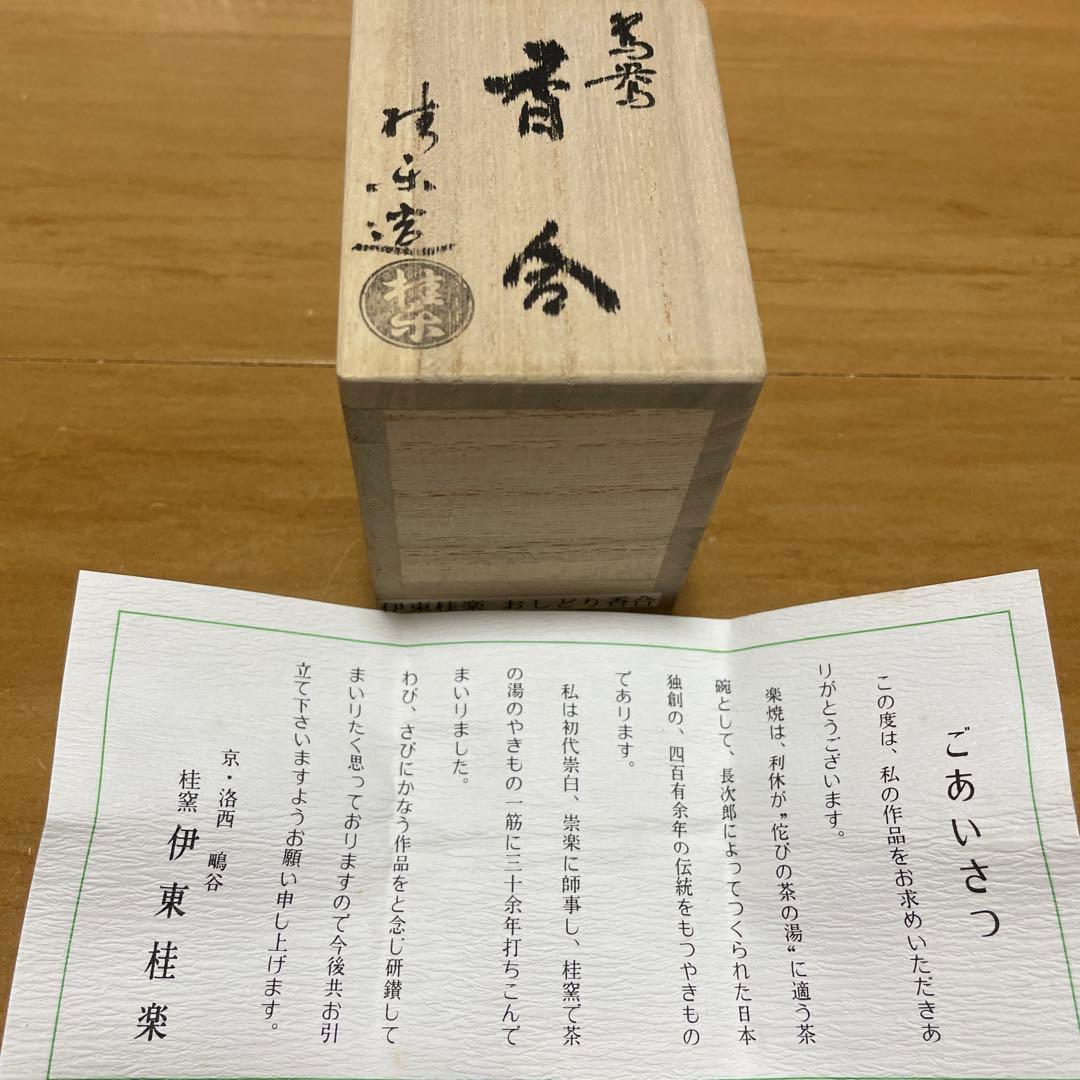 鴛鴦
香合
桂楽造
桂楽
伊東桂楽 おしどり香合
ごあいさつ
この度は、私の作品をお求めいただきあ
りがとうございます。
楽焼は、利休が〝侘びの茶の湯〟に適う茶
碗として、長次郎によってつくられた日本
独創の、四百有余年の伝統をもつやきもの
であります。
私は初代崇白、崇楽に師事し、桂窯で茶
の湯のやきもの一筋に三十余年打ちこんで
まいりました。
わび、さびにかなう作品をと念じ研鑚して
まいりたく思っておりますので今後共お引
立て下さいますようお願い申し上げます。
京・洛西 鴫谷
桂窯 伊東桂楽